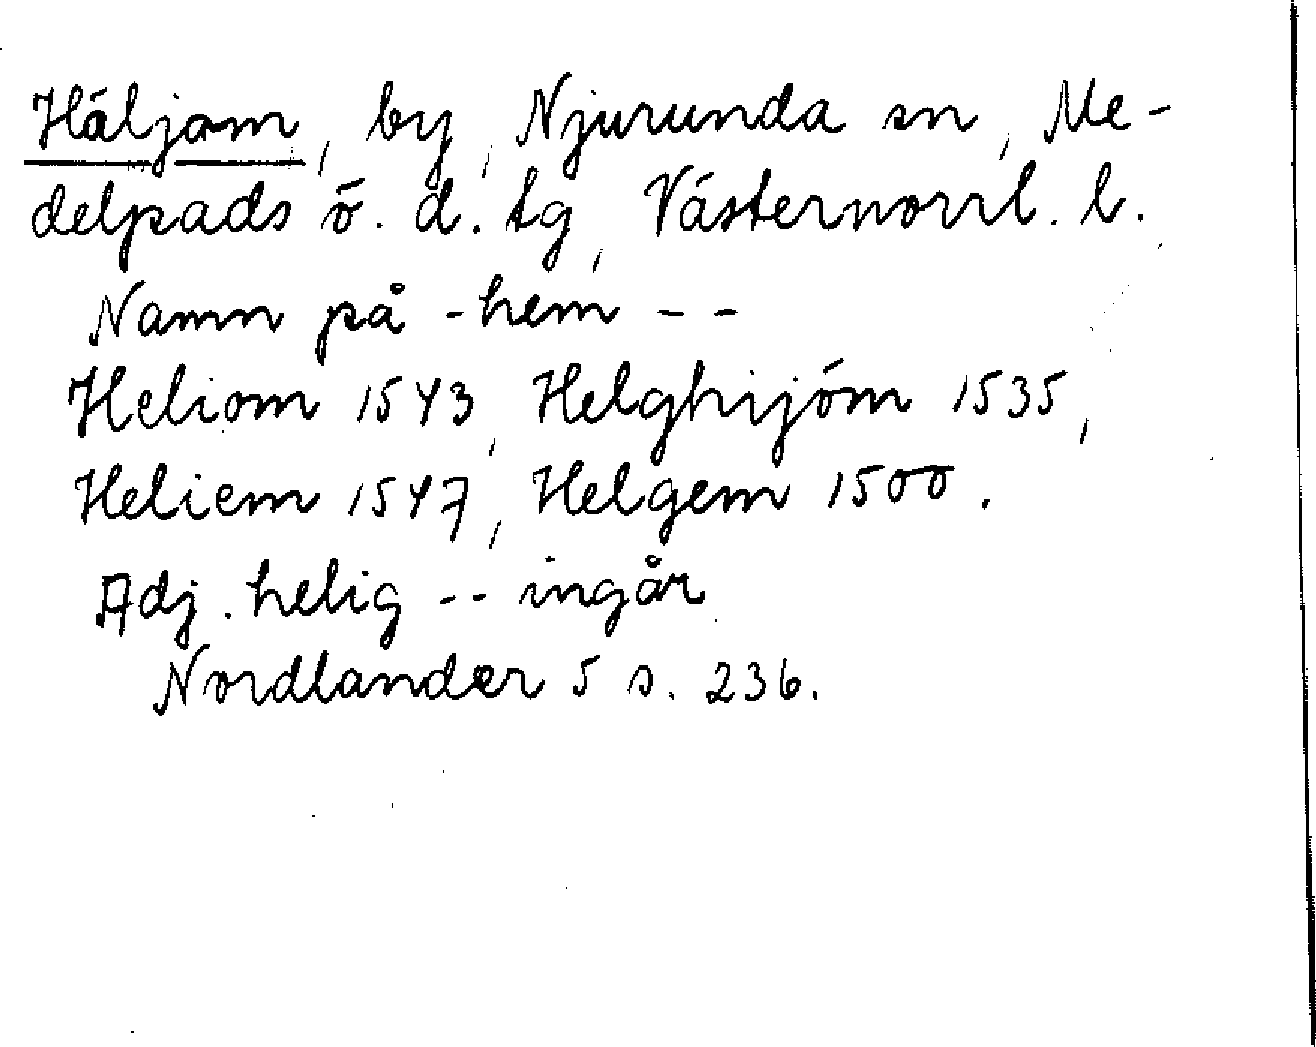 Häljom, by, Njurunda sn, Me-
delpads ö. d. tg, Västernorrl. l.
Namn på -hem --
Heliom 1543, Helghijöm 1535,
Heliem 1547, Helgem 1500.
Adj. helig -- ingår
Nordlander 5 s. 236.